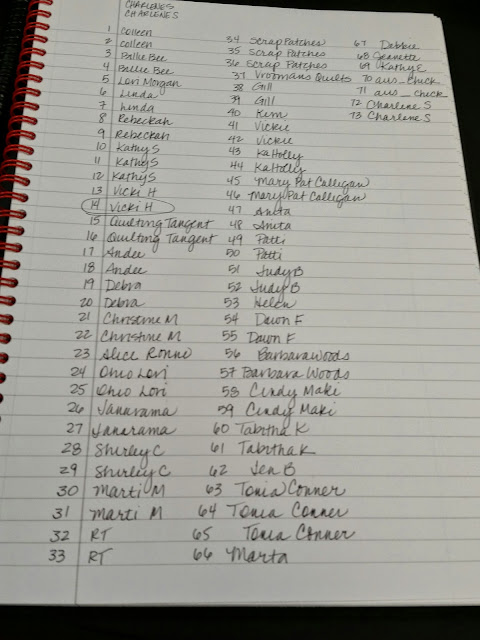 CHARLENES
CHARLENES
1 Colleen
2 Colleen
3 Billie Bee
4 Billie Bee
5 Lori Morgan
6 Linda
7 Linda
8 Rebeckah
9 Rebeckah
10 Kathy S
11 Kathy S
12 Kathy S
13 Vicki H
14 Vicki H
15 Quilting Tangent
16 Quilting Tangent
17 Andee
18 Andee
19 Debra
20 Debra
21 Christine M
22 Christine M
23 Alice Ronne
24 Ohio Lori
25 Ohio Lori
26 Janarama
27 Janarama
28 Shirley C
29 Shirley C
30 Marti M
31 Marti M
32 RT
33 RT
34 Scrap Patches
35 Scrap Patches
36 Scrap Patches
37 Vroomans Quilts
38 Gill
39 Gill
40 Kim
41 Vickie
42 Vickie
43 KaHolly
44 KaHolly
45 Mary Pat Calligan
46 Mary Pat Calligan
47 Anita
48 Anita
49 Patti
50 Patti
51 Judy B
52 Judy B
53 Helen
54 Dawn F
55 Dawn F
56 Barbara Woods
57 Barbara Woods
58 Cindy Maki
59 Cindy Maki
60 Tabitha K
61 Tabitha K
62 Jen B
63 Tonia Conner
64 Tonia Conner
65 Tonia Conner
66 Marta
67 Debbie
68 Jeanette
69 Kathy E
70 aus_chick
71 aus_chick
72 Charlene S
73 Charlene S